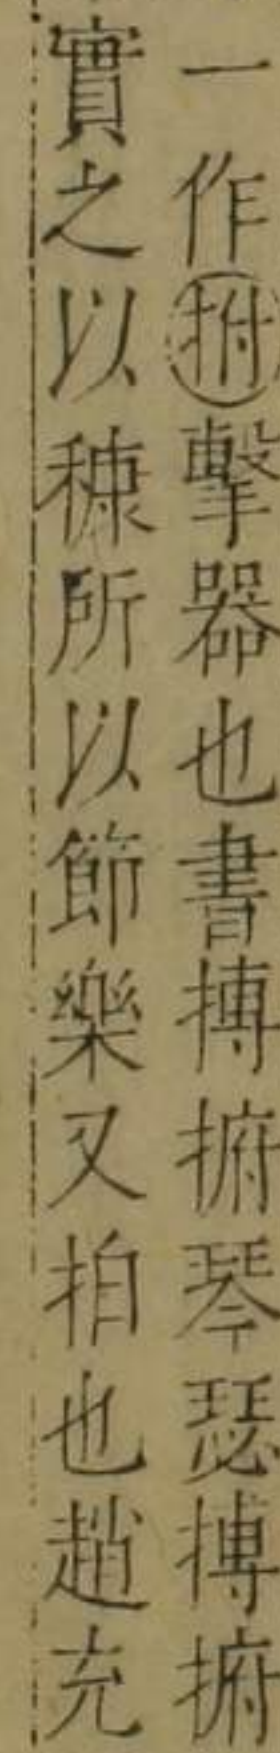 一作拊擊器也書搏㨈琴瑟搏㨈
實之以穅所以節樂又拍也趙充